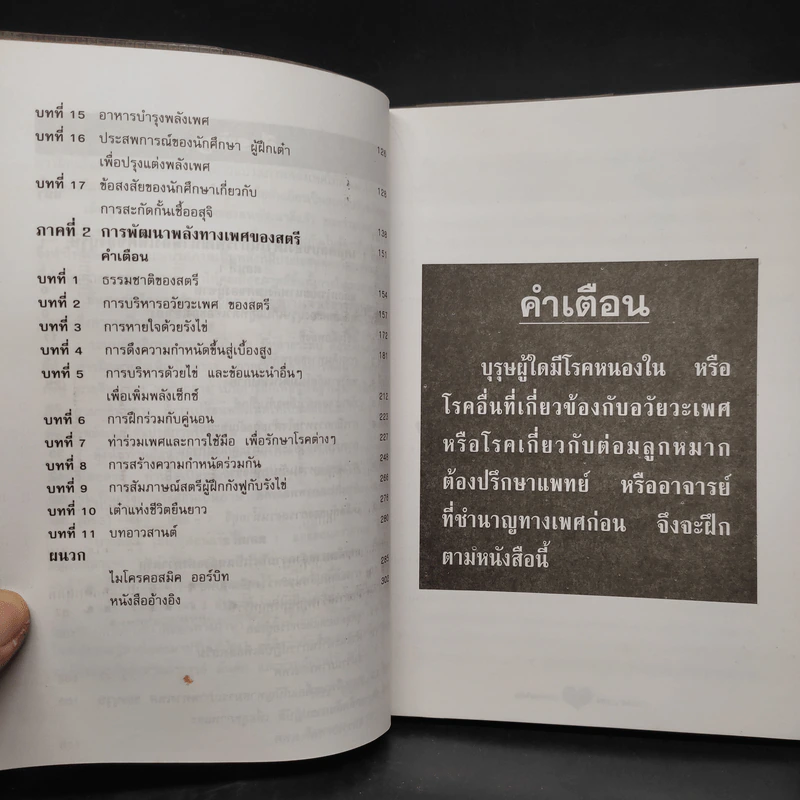 บทที่ 15 อาหารบำรุงพลังเพศ
บทที่ 16 ประสพการณ์ของนักศึกษา ผู้ฝึกเต๋า
เพื่อปรุงแต่งพลังเพศ 126
บทที่ 17 ข้อสงสัยของนักศึกษาเกี่ยวกับ
การสะกัดกั้นเชื้ออสุจิ
ภาคที่ 2 การพัฒนาพลังทางเพศของสตรี 138
คำเตือน 151
บทที่ 1 ธรรมชาติของสตรี
บทที่ 2 การบริหารอวัยวะเพศ ของสตรี 154
บทที่ 3 การหายใจด้วยรังไข่ 157
บทที่ 4 การดึงความกำหนัดขึ้นสู่เบื้องสูง 172
บทที่ 5 การบริหารด้วยไข่ และข้อแนะนำอื่นๆ 181
เพื่อเพิ่มพลังเซ็กซ์
บทที่ 6 การฝึกร่วมกับคู่นอน 212
บทที่ 7 ท่าร่วมเพศและการใช้มือ เพื่อรักษาโรคต่างๆ 223
บทที่ 8 การสร้างความกำหนัดร่วมกัน 227
บทที่ 9 การสัมภาษณ์สตรีผู้ฝึกกังฟูกับรังไข่
บทที่ 10 เต๋าแห่งชีวิตยืนยาว
บทที่ 11 บทอาวสานต์ 280
ผนวก
ไมโครคอสมิค ออร์บิท 285
หนังสืออ้างอิง 302
คำเตือน
บุรุษผู้ใดมีโรคหนองใน หรือ
โรคอื่นที่เกี่ยวข้องกับอวัยวะเพศ
หรือโรคเกี่ยวกับต่อมลูกหมาก
ต้องปรึกษาแพทย์ หรืออาจารย์
ที่ชำนาญทางเพศก่อน จึงจะฝึก
ตามหนังสือนี้